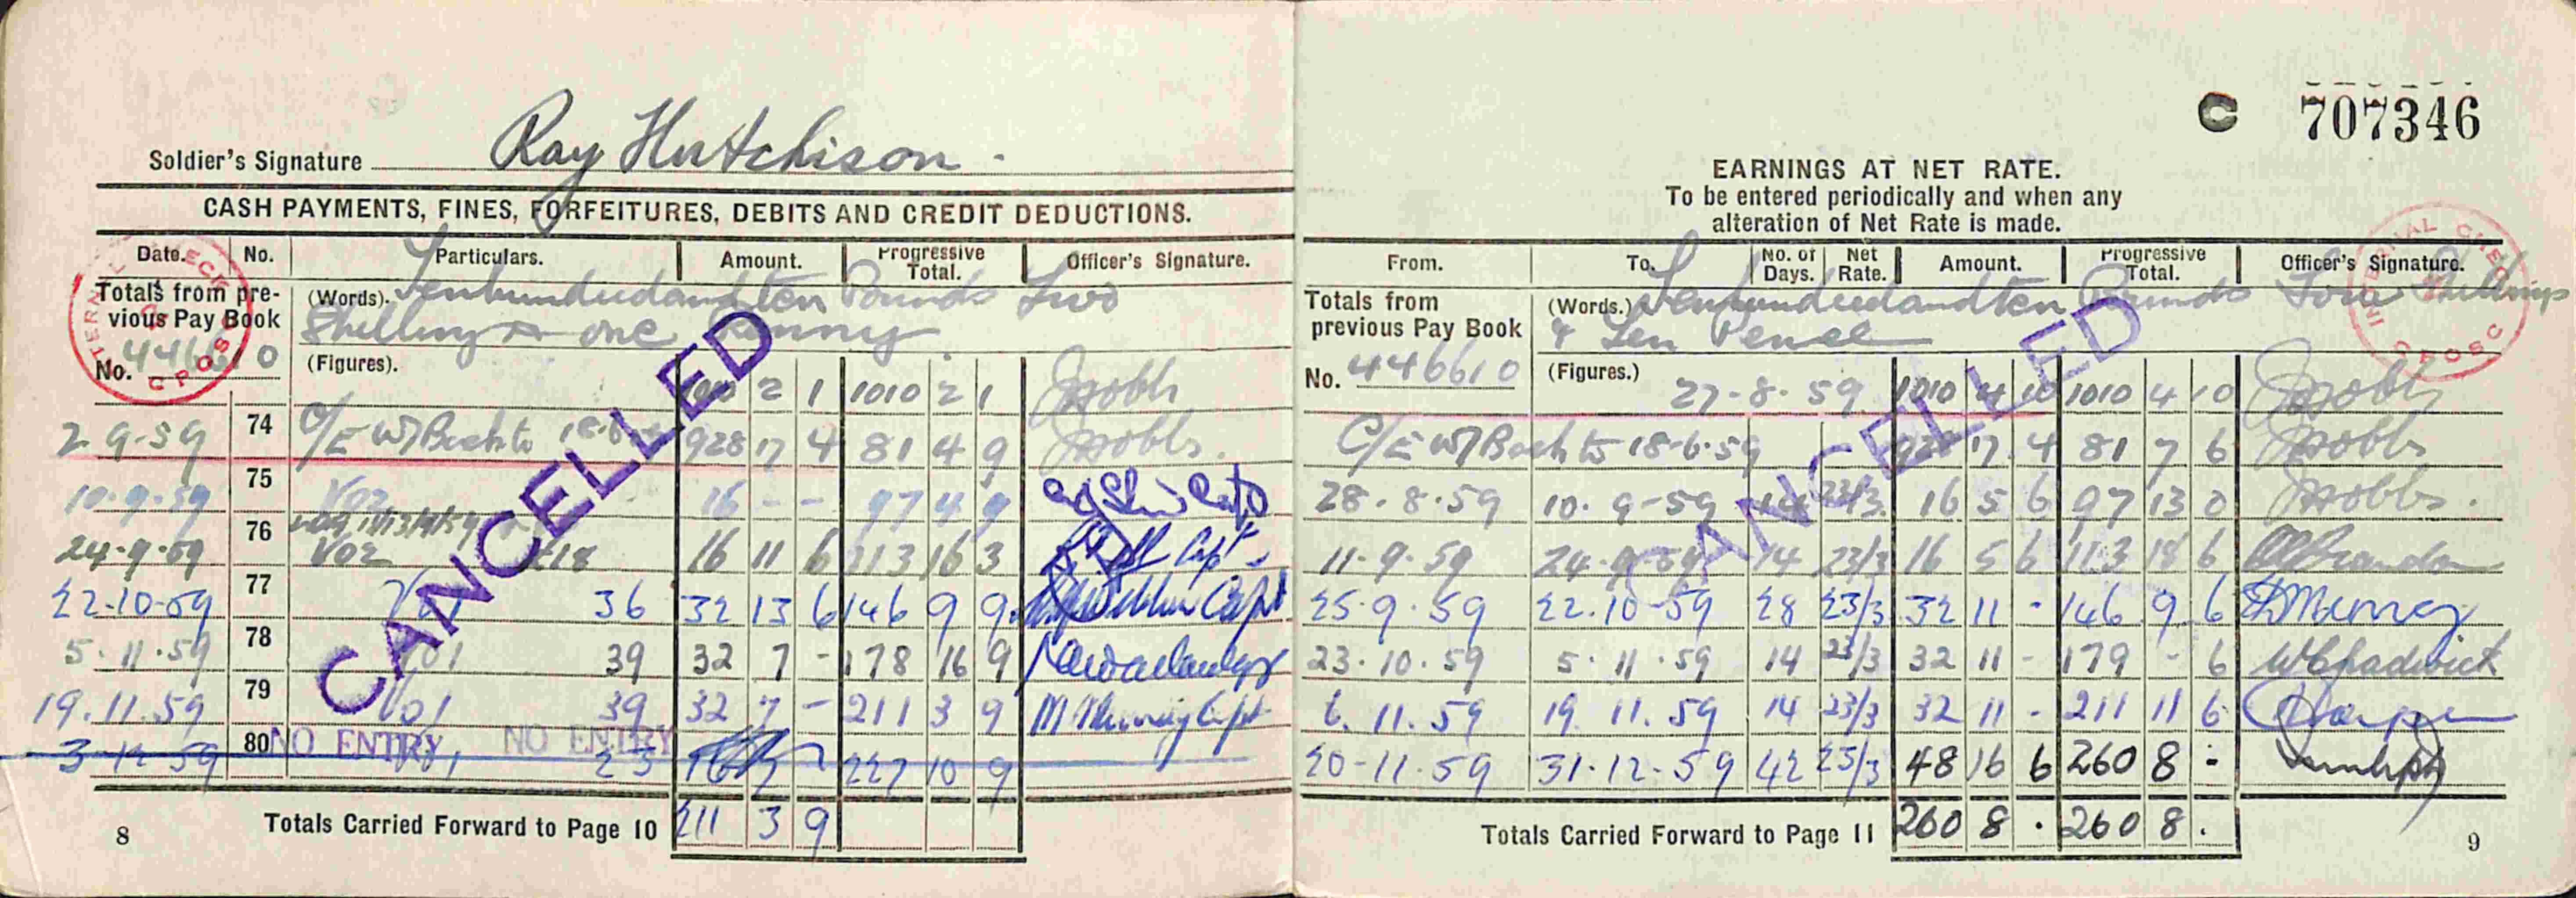 Soldier's Signature Ray Hutchison
CASH PAYMENTS, FINES, FORFEITURES, DEBITS AND CREDIT DEDUCTIONS.
Date. No. Particulars. Amount. Progressive Total. Officer's Signature.
Totals from previous Pay Book (Words). Tenhundredandten Pounds Two
Shillings & one Penny
No. 446610 (Figures). 1010 2 1 1010 2 1
2 9-59 74 928 17 4 81 4 9
10-9-59 75 16 - - 97 4 9
24-9-59 76 V02 £18 16 11 6 113 16 3
22-10-59 77 V01 36 32 13 6 146 9 9
5-11-59 78 V01 39 32 7 - 178 16 9
19.11.59 79 V01 39 32 7 - 211 3 9
3-12-59 80 NO ENTRY NO ENTRY 23 227 10 9
Totals Carried Forward to Page 10 211 3 9
8
CANCELLED
C 707346
EARNINGS AT NET RATE.
To be entered periodically and when any
alteration of Net Rate is made.
From. To. No. of Days. Net Rate. Amount. Progressive Total. Officer's Signature.
Totals from previous Pay Book (Words.) Tenhundredandten Pounds Four Shillings
& Ten Pence
No. 446610 (Figures.) 27-8-59 1010 4 10 1010 4 10
18-6-59 928 17 4 81 7 6
28.8.59 10.9-59 14 23/3 16 5 6 97 13 0
11-9-59 24-9-59 14 23/3 16 5 6 113 18 6
25.9.59 22.10-59 28 23/3 32 11 - 146 9 6 Murray
23.10.59 5.11.59 14 23/3 32 11 - 179 - 6 W Chadwick
6.11.59 19.11.59 14 23/3 32 11 - 211 11 6
20-11.59 31-12-59 42 23/3 48 16 6 260 8 -
Totals Carried Forward to Page 11 260 8 . 260 8 .
9
CANCELLED
INTERNAL CHECK